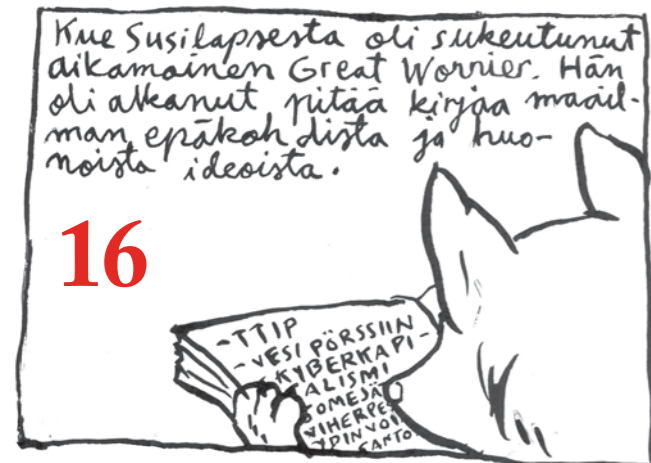 Kue Susilapsesta oli sukeutunut
aikamoinen Great Worrier. Hän
oli alkanut pitää kirjaa maail-
man epäkohdista ja huo-
noista ideoista.
16
-TTIP
-VESI PÖRSSIIN
-KYBERKAPI-
ALISMI
SOMEJÄ
VIHERPE